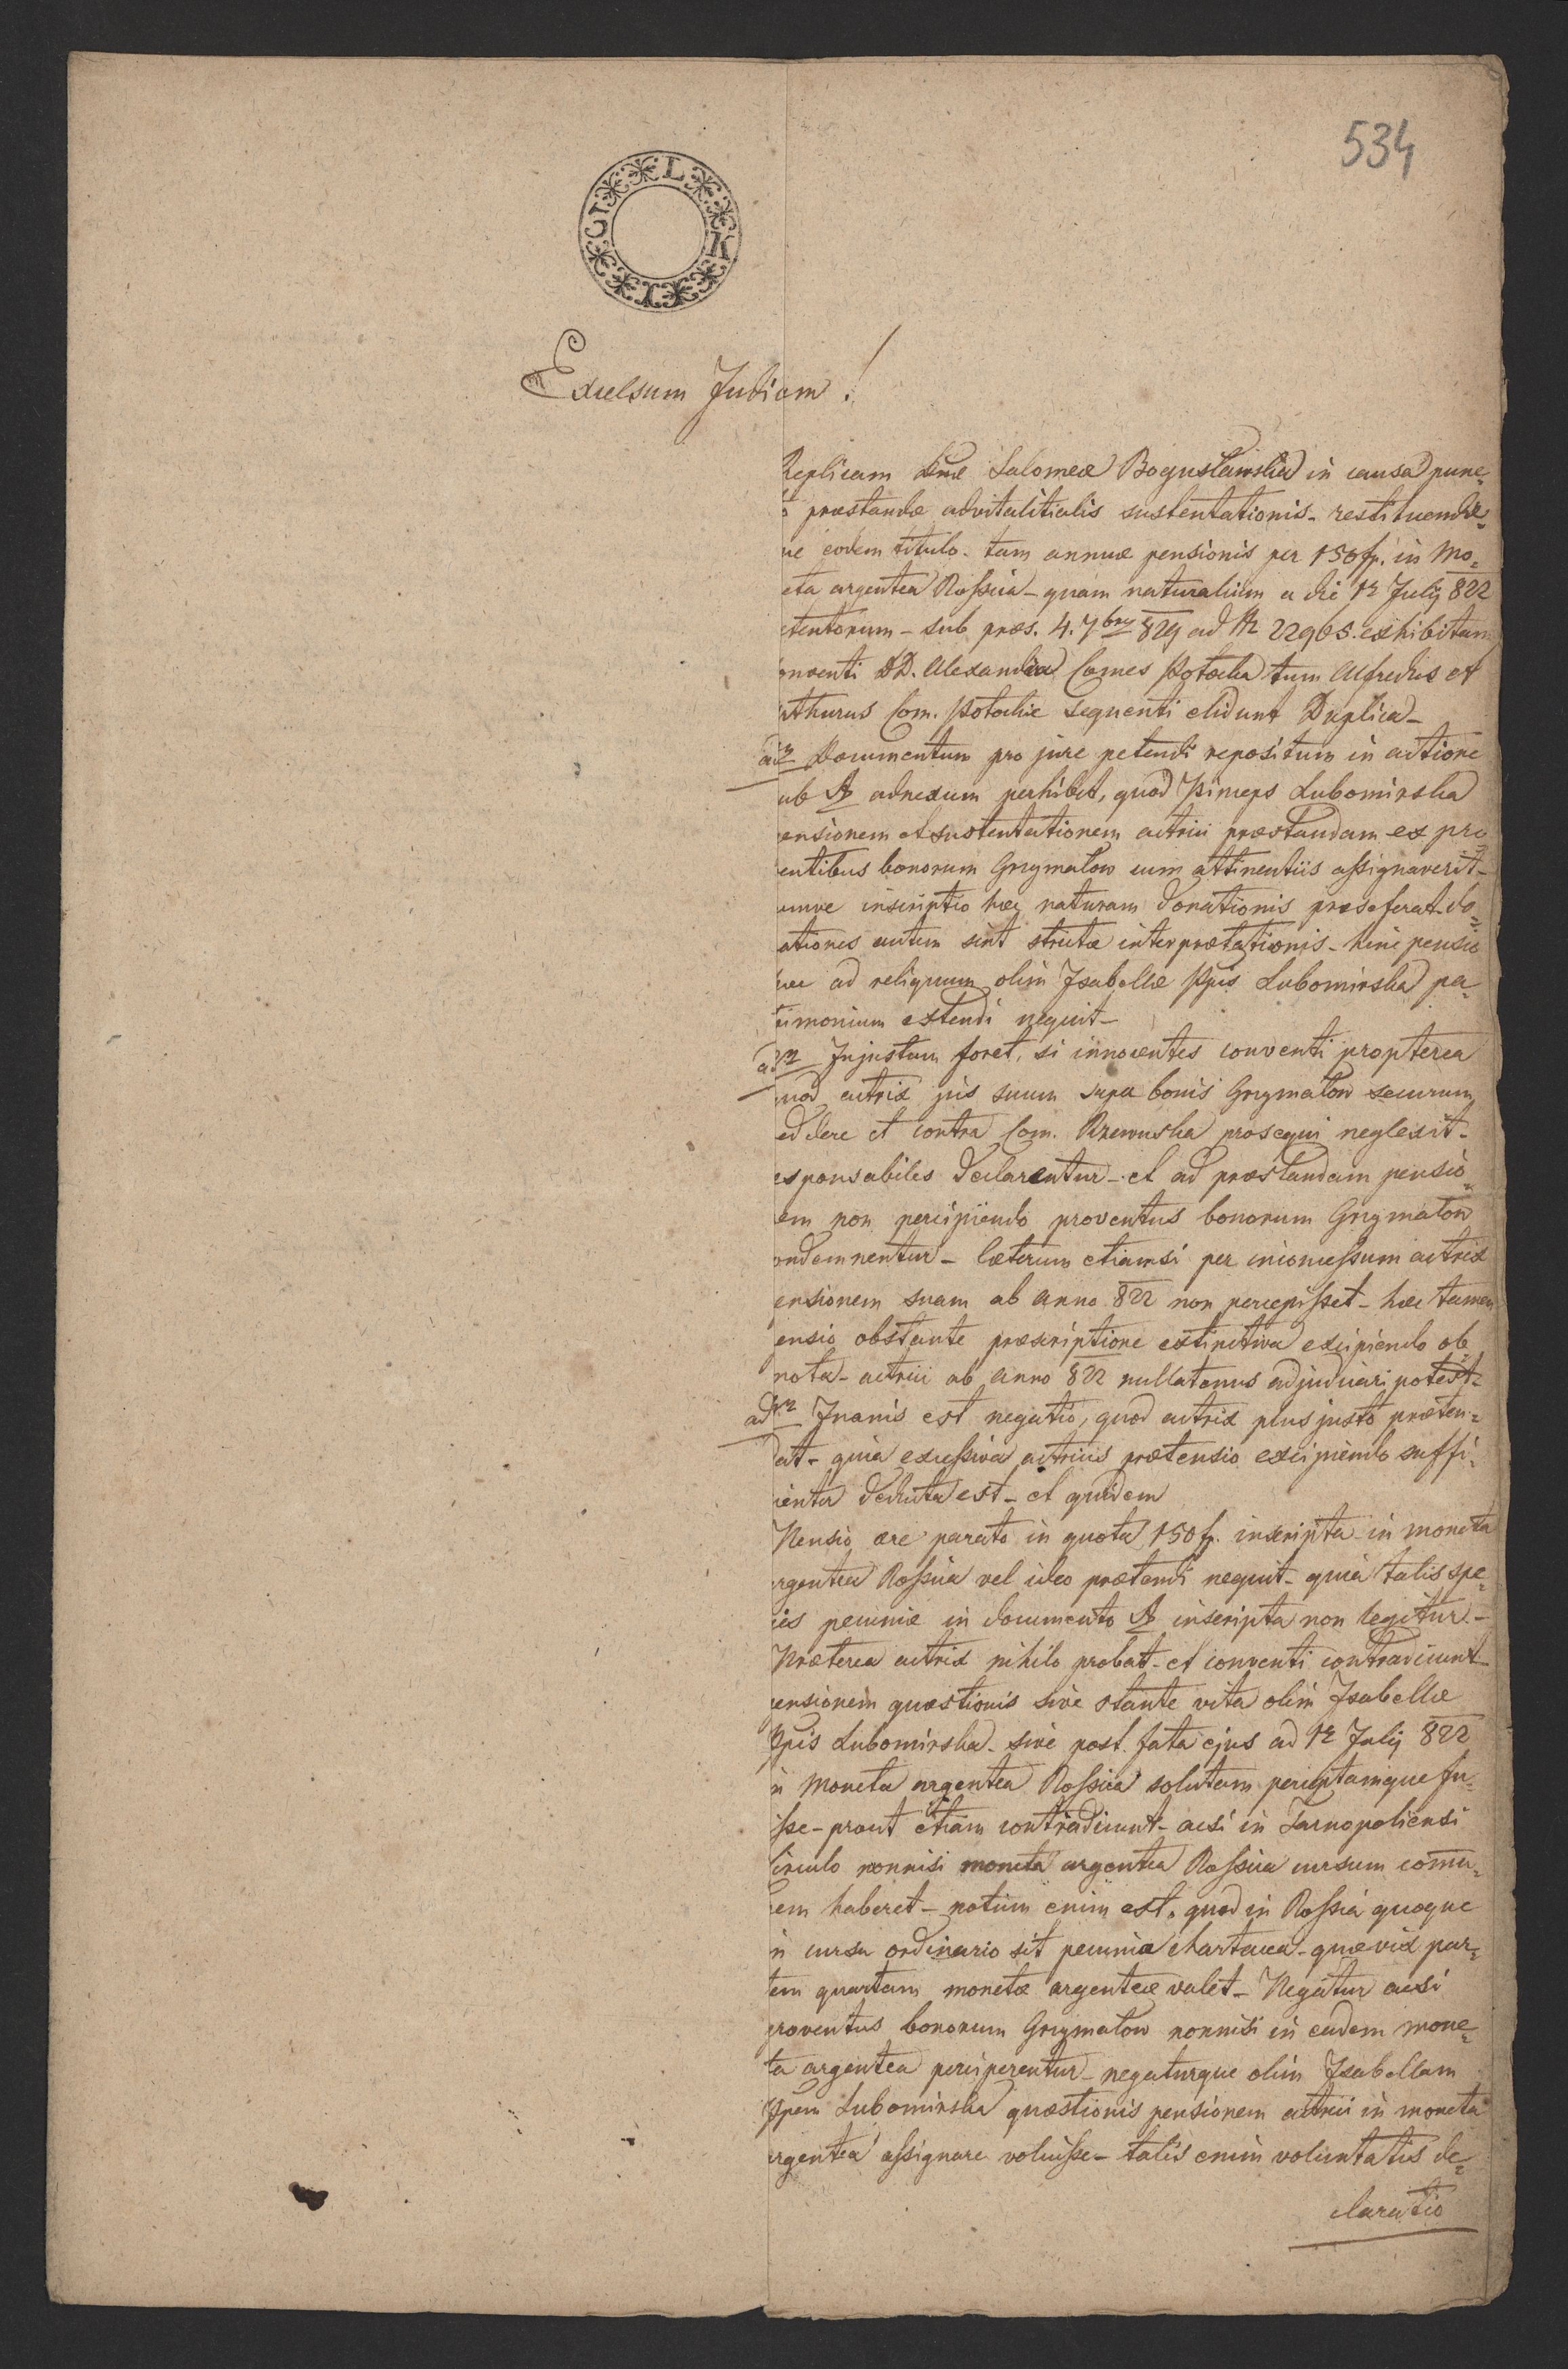 534
L K I C I
Excelsum Judicum!
Replicam Dnæ Salomeæ Bogusławska in causa punc=
o præstandæ advitalitialis sustentationis - restituendæ=
ve eodem titulo - tam annuæ pensionis per 150 fp. in Mo=
eta argentea Rossica - quam naturalium a die 12 July 822
etentorum - sub præs. 4. 7bry 829 ad N 22965. exhibitam
onventi DD. Alexandra Comes Potocka tum Alfredus et
rthurus Com. Potockie sequenti elidunt Duplica -
ad Documentum pro jure petendi repositum in actione
ub A adnexum perhibet, quod Pinceps Lubomirska
ensionem et sustentationem actrici præstandam ex pro
entibus bonorum Grzymałow cum attinentiis assignaverit -
umve inscriptio hæc naturam donationis præseferat - do=
ationes autem sint strictæ interprætationis - hinc pensio
hæc ad reliquum olim Isabellæ Ppis Lubomirska pa=
rimonium extendi nequit -
ad Injustum foret, si innocentes conventi propterea
uod actrix jus suum supra bonis Grzymałow securum
eddere et contra Com. Rzewuska prosequi neglexit -
esponsabiles declarentur - et ad præstandam pensio=
em non percipiendo proventus bonorum Grzymałow
ondemnentur - Cæterum etiamsi per inconcessum actrix
ensionem suam ab anno 822 non percepisset - hæc tamen
ensio obstante præscriptione extinctiva excipiendo ob
nota - actrici ab anno 822 nullatenus adjudicari potest -
ad Inanis est negatio, quod actrix plus justo præten=
dat - quia excessiva actricis prætensio excipiendo suffi=
ienter deducta est - et quidem
Pensio ære parato in quota 150 fp. inscripta in moneta
rgentea Rossica vel ideo prætendi nequit - quia talis spe=
ies pecuniæ in documento A inscripta non legitur. -
Præterea actrix nihilo probat - et conventi contradicunt
ensionem quæstionis sive stante vita olim Isabellæ
Ppis Lubomirska - sive post fata ejus ad 12 July 822
n Moneta argentea Rossica solutam perceptamque fu=
isse - prout etiam contradicunt - acsi in Tarnopoliensi
Circulo nonnisi moneta argentea Rossica cursum comu=
em haberet - notum enim est, quod in Rossia quoque
n cursu ordinario sit pecunia chartacea - quæ vix par=
tem quartam monetæ argenteæ valet - Negatur acsi
roventus bonorum Grzymałow nonnisi in eadem mone=
ta argentea perciperentur - negaturque olim Isabellam
Ppem Lubomirska quæstionis pensionem actrici in moneta
rgentea assignare voluisse - talis enim voluntatis de=
claratio